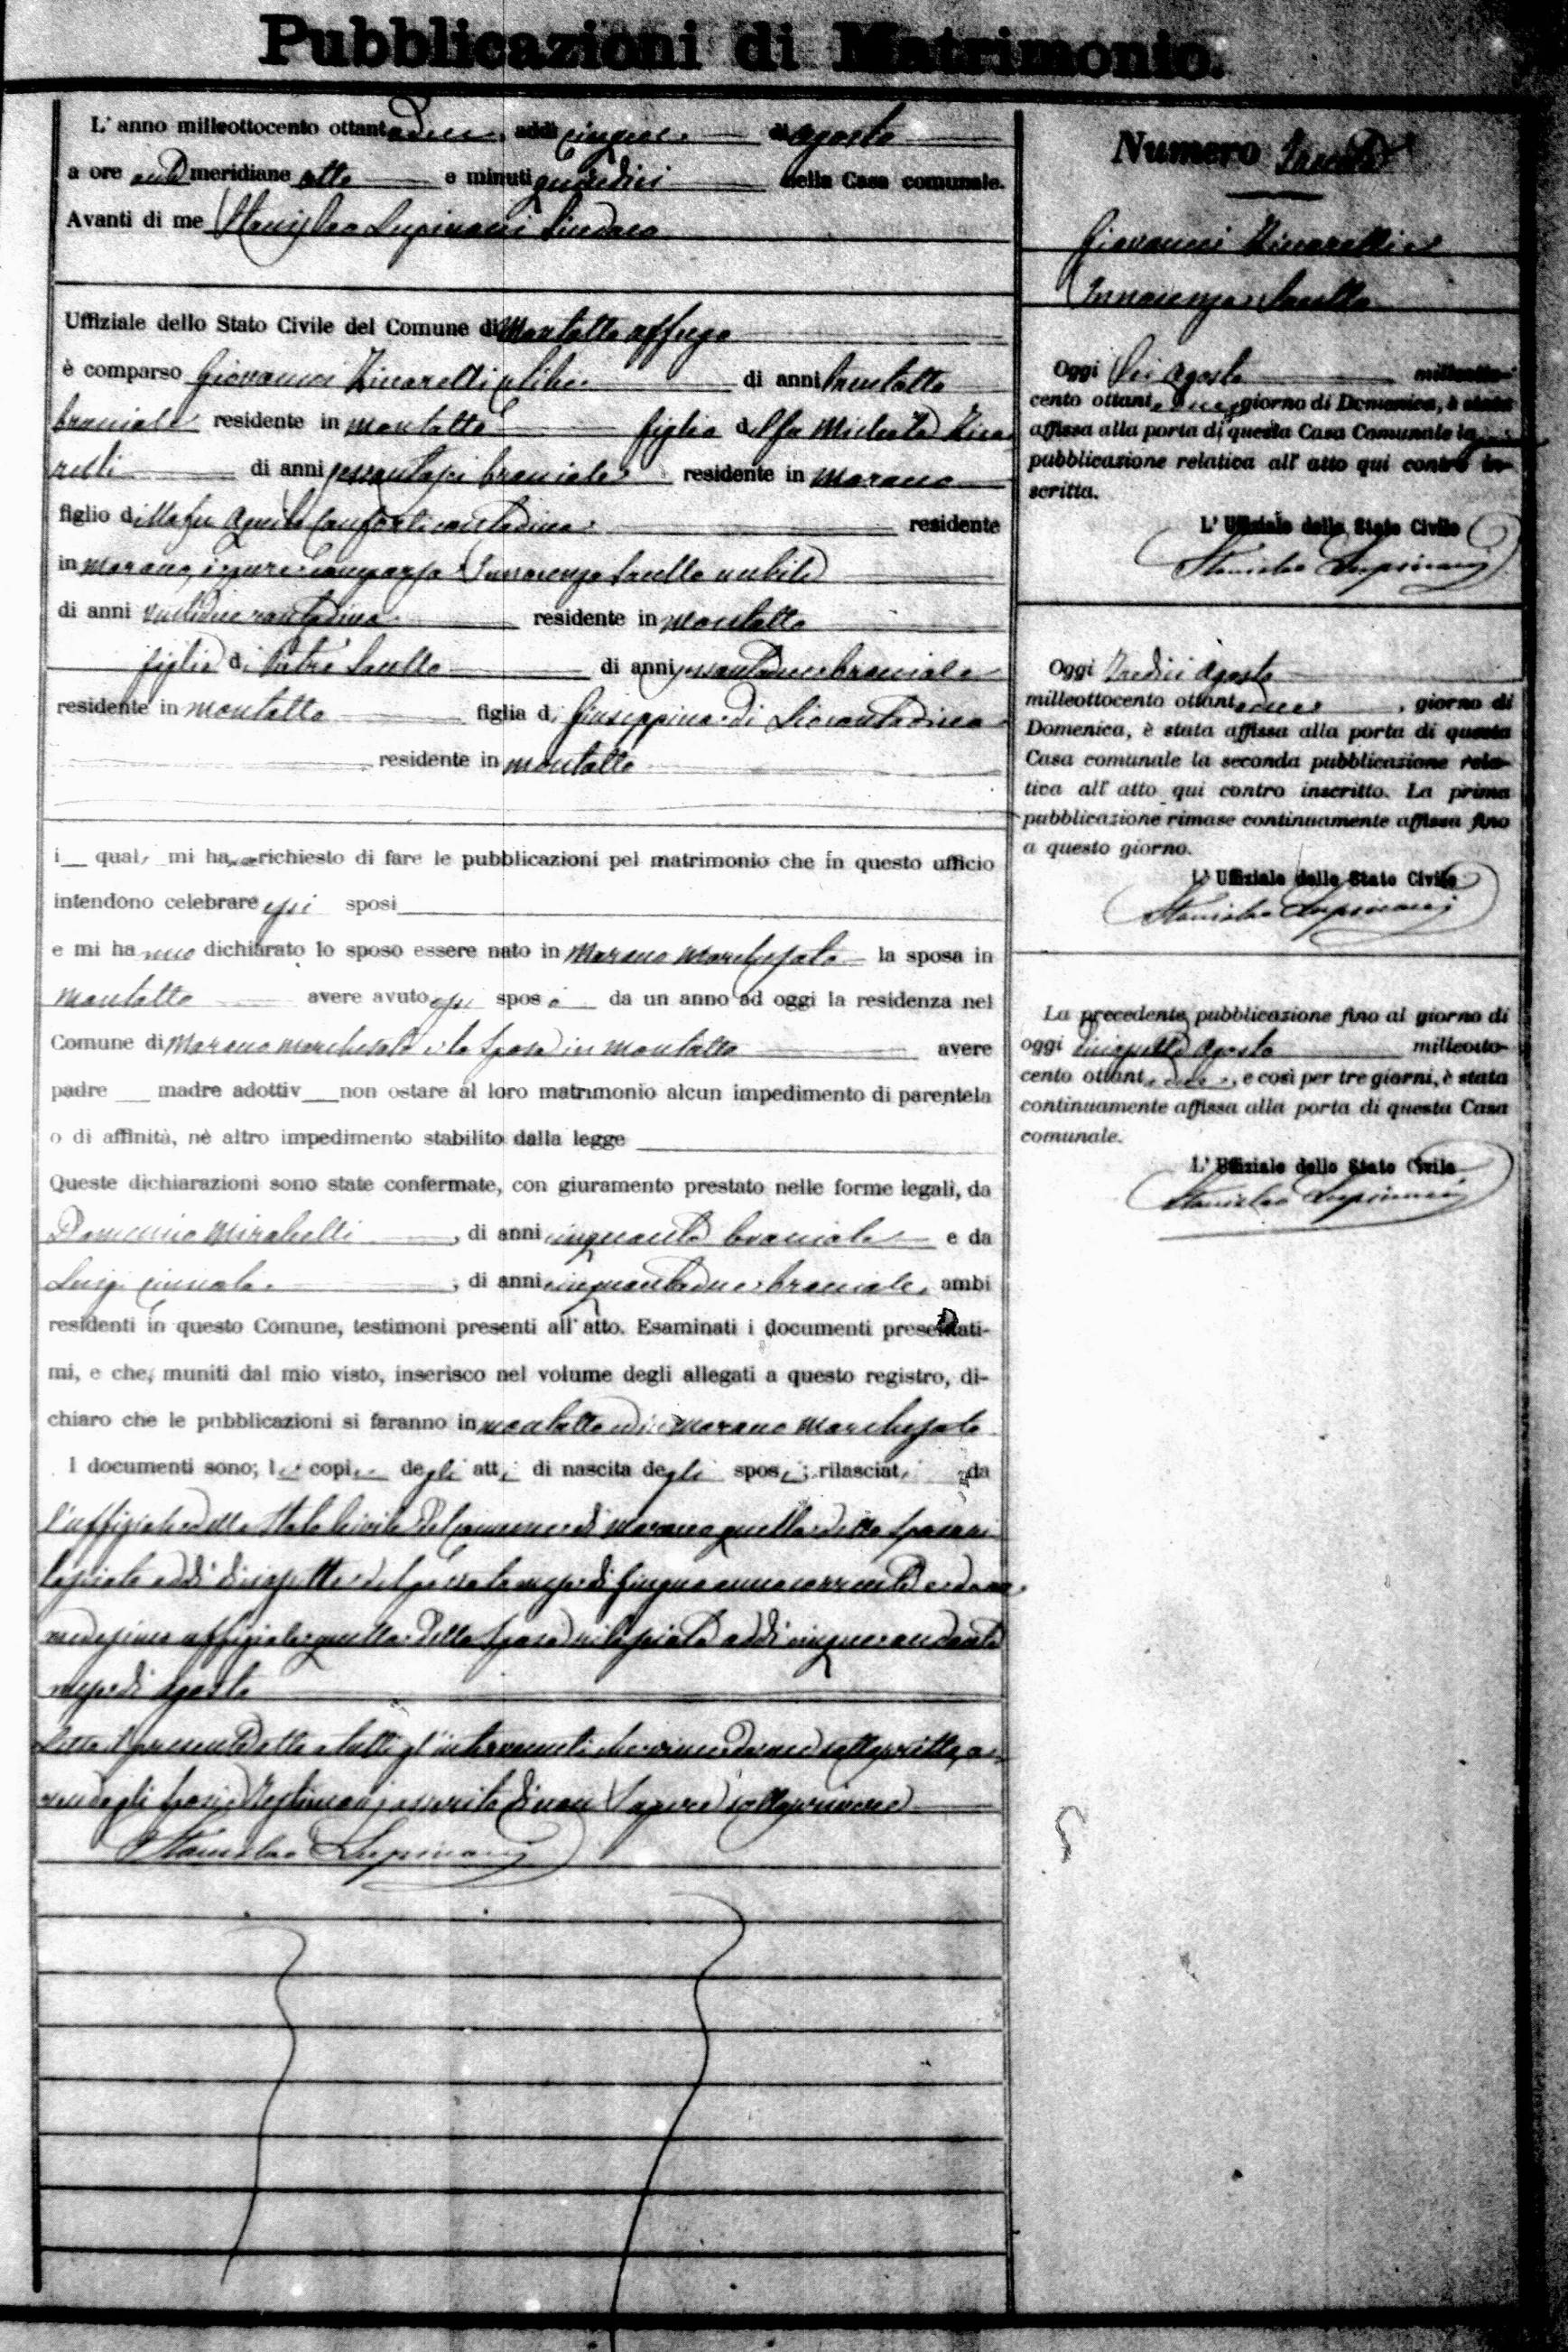 Pubblicazioni di Matrimonio.
L'anno milleottocento ottantadue, addì cinque di Agosto
a ore anti meridiane otto e minuti quindici nella Casa comunale.
Avanti di me Stanislao Lupinacci Sindaco
Uffiziale dello Stato Civile del Comune di Montalto uffugo
è comparso Giovanni Zicarelli celibe di anni trentotto
bracciale residente in montalto figlio del fu Michele Zica
relli di anni sessantasei bracciale residente in marano
figlio della fu Conforti contadina residente
in marano, è pure comparsa Innocenza Sacello nubile
di anni contadina residente in montalto
figlia di Sacello di anni sessantadue bracciale
residente in montalto figlia di Giuseppina di contadina
residente in montalto
i quali mi hanno richiesto di fare le pubblicazioni pel matrimonio che in questo ufficio
intendono celebrare essi sposi
e mi hanno dichiarato lo sposo essere nato in Marano Marchesato la sposa in
montalto avere avuto essi sposi da un anno ad oggi la residenza nel
Comune di Marano marchesato e la sposa in montalto avere
padre madre adottiv non ostare al loro matrimonio alcun impedimento di parentela
o di affinità, nè altro impedimento stabilito dalla legge
Queste dichiarazioni sono state confermate, con giuramento prestato nelle forme legali, da
Domenico Mirabelli, di anni cinquanta bracciale e da
Luigi, di anni cinquantadue bracciale, ambi
residenti in questo Comune, testimoni presenti all'atto. Esaminati i documenti presentati-
mi, e che, muniti dal mio visto, inserisco nel volume degli allegati a questo registro, di-
chiaro che le pubblicazioni si faranno in montalto ed in Marano Marchesato
I documenti sono; le copie degli atti di nascita degli sposi; rilasciati da
l'uffiziale dello Stato Civile del Comune di Marano quella dello sposo ri
lasciata addì diciassette del passato mese di Giugno anno corrente e dal
medesimo uffiziale quella della sposa rilasciata addì cinque andante
mese di Agosto
Letto il presente atto a tutti gl'intervenuti che viene da me sottoscritto, a
vendo gli sposi e testimonj asserito di non sapere sottoscrivere
Stanislao Lupinacci
Numero
Giovanni Zicarelli e
Innocenza Sacello
Oggi sei Agosto milleotto-
cento ottantadue, giorno di Domenica, è stata
affissa alla porta di questa Casa Comunale la
pubblicazione relativa all'atto qui contro in-
scritta.
L'Uffiziale dello Stato Civile
Stanislao Lupinacci
Oggi Tredici Agosto
milleottocento ottantadue, giorno di
Domenica, è stata affissa alla porta di questa
Casa comunale la seconda pubblicazione rela-
tiva all'atto qui contro inscritto. La prima
pubblicazione rimase continuamente affissa fino
a questo giorno.
L'Uffiziale dello Stato Civile
Stanislao Lupinacci
La precedente pubblicazione fino al giorno di
oggi Agosto milleotto-
cento ottantadue, e così per tre giorni, è stata
continuamente affissa alla porta di questa Casa
comunale.
L'Uffiziale dello Stato Civile
Stanislao Lupinacci